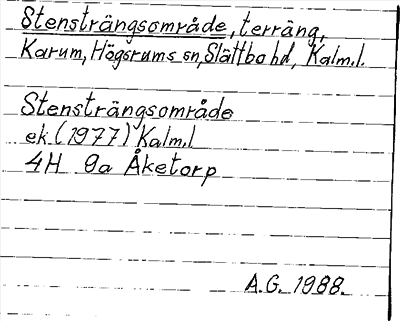 Stensträngsområde, terräng,
Karum, Högsrums sn, Slättbo hd, Kalm.l.
Stensträngsområde
ek. (1977) Kalm.l
4H 9a Åketorp
A.G. 1988.